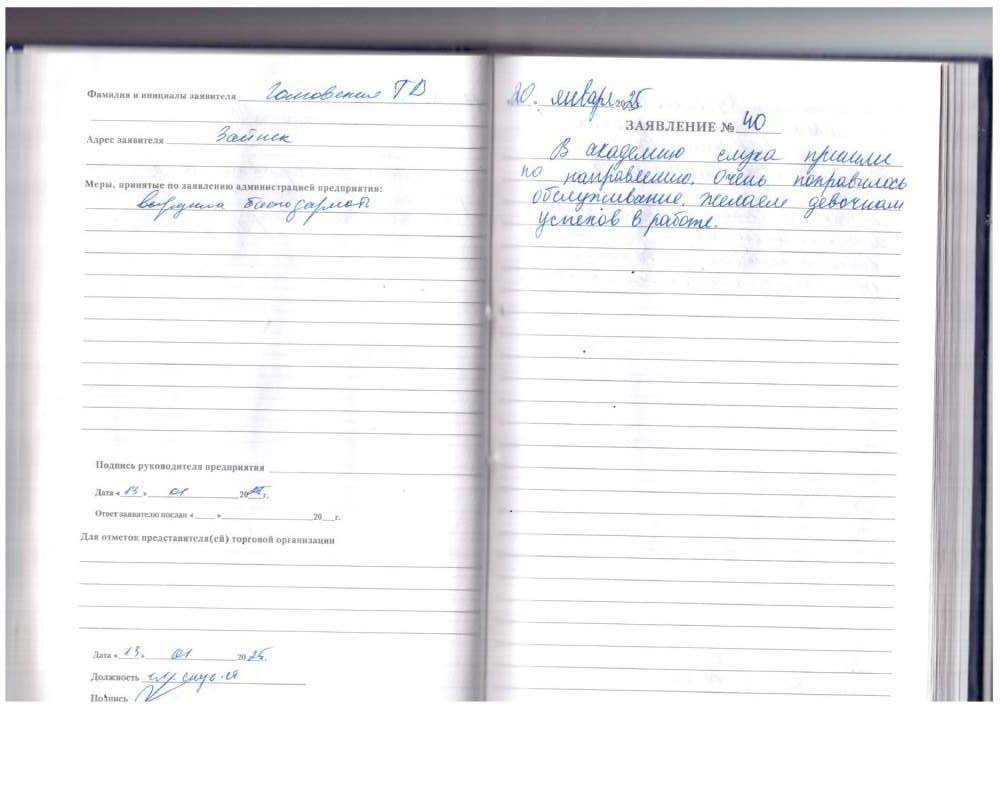 Фамилия и инициалы заявителя ТВ
Адрес заявителя Заинск
Меры, принятые по заявлению администрацией предприятия:
Подпись руководителя предприятия
Дата « 13 » 01 20 25 г.
Ответ заявителю послан « » 20 г.
Для отметок представителя(ей) торговой организации
Дата « 13 » 01 20 25.
Должность
Подпись
20. января 2025
ЗАЯВЛЕНИЕ № 40
В академию слуха пришли
по направлению. Очень понравилось
обслуживание. Желаем девочкам
успехов в работе.